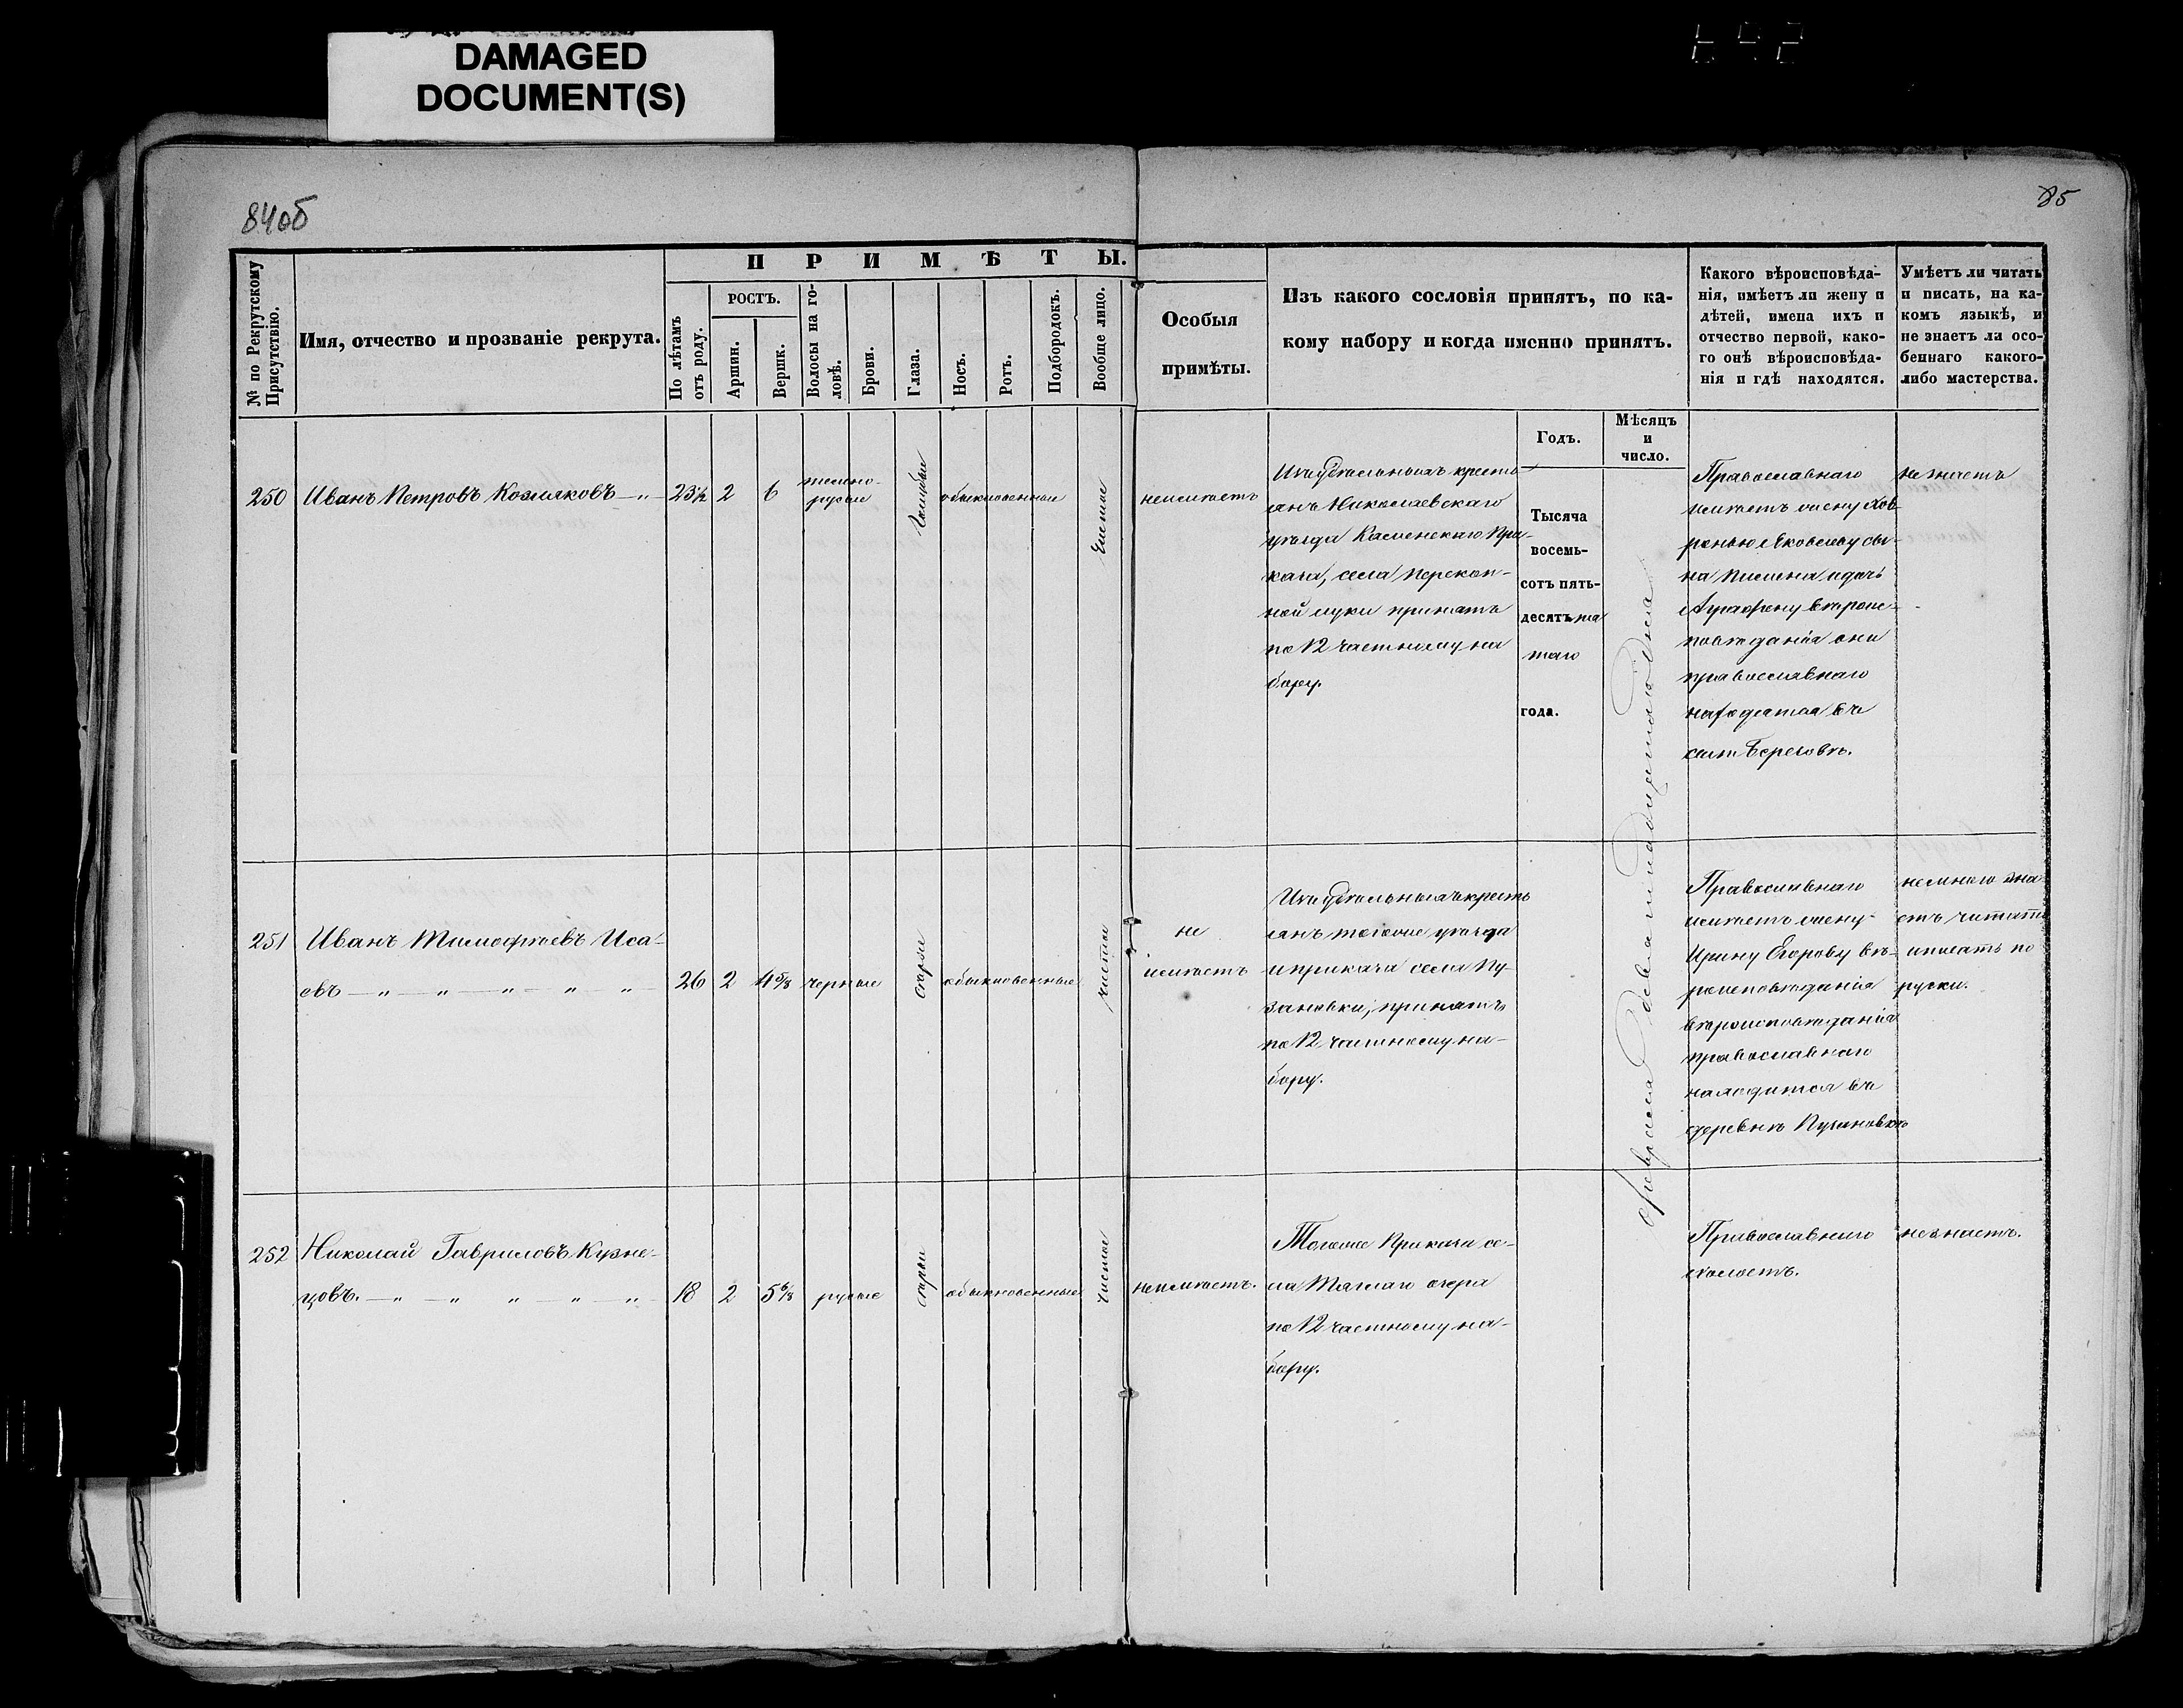 DAMAGED
DOCUMENT(S)
84об
85
№ по Рекрутскому
Присутствію.
Имя, отчество и прозваніе рекрута.
ПРИМѢТЫ.
По лѣтамъ
отъ роду.
РОСТЪ.
Аршин.
Вершк.
Волосы на го-
ловѣ.
Брови.
Глаза.
Носъ.
Ротъ.
Подбородокъ.
Вообще лицо.
Особыя
примѣты.
Изъ какого сословія принятъ, по ка-
кому набору и когда именно принятъ.
Годъ.
Мѣсяцъ
и
число.
Какого вѣроисповѣда-
нія, имѣетъ ли жену и
дѣтей, имена ихъ и
отчество первой, како-
го онѣ вѣроисповѣда-
нія и гдѣ находятся.
Умѣетъ ли читать
и писать, на ка-
комъ языкѣ, и
не знаетъ ли осо-
беннаго какого-
либо мастерства.
250
Иванъ Петровъ Козляковъ — „ —
23½
2
6
темно-
русыя
голубыя
обыкновенныя
чистое
неимѣетъ
Изъ удѣльныхъ кресть
янъ Николаевскаго
уѣзда Каменскаго При-
каза, села Перекоп-
ной луки принятъ
по 12 частному на
бору.
Тысяча
восемь-
сотъ пять-
десятъ пя
таго
года.
февраля двадцатаго дня
Православнаго
имѣетъ жену Хов
ронью Яковлеву сы-
на Пимена и дочь
Аграфену вѣроис-
повѣданія они
православнаго
находятся въ
селѣ Березовкѣ.
не знаетъ
251
Иванъ Тимофѣевъ Иса-
евъ — „ — „ — „ — „ — „ —
26
2
4⅝
черные
серые
обыкновенные
чистое
не
имѣетъ
Изъ удѣльныхъ кресть
янъ тогоже уѣзда
и приказа села Пу-
зановки, принятъ
по 12 частному на-
бору.
Православнаго
имѣетъ жену
Ирину Егорову вѣ-
роисповѣданія
вѣроисповѣданія
православнаго
находится въ
деревнѣ Пузановкѣ
немного зна
етъ читать
и писать по
руски.
252
Николай Гавриловъ Кузне-
цовъ. — „ — „ — „ — „ — „ —
18
2
5⁶⁄₈
русые
серые
обыкновенные
чистое
неимѣетъ.
Тогоже Приказа се-
ла Тяглаго озера
по 12 частному на-
бору.
Православнаго
холостъ.
не знаетъ.